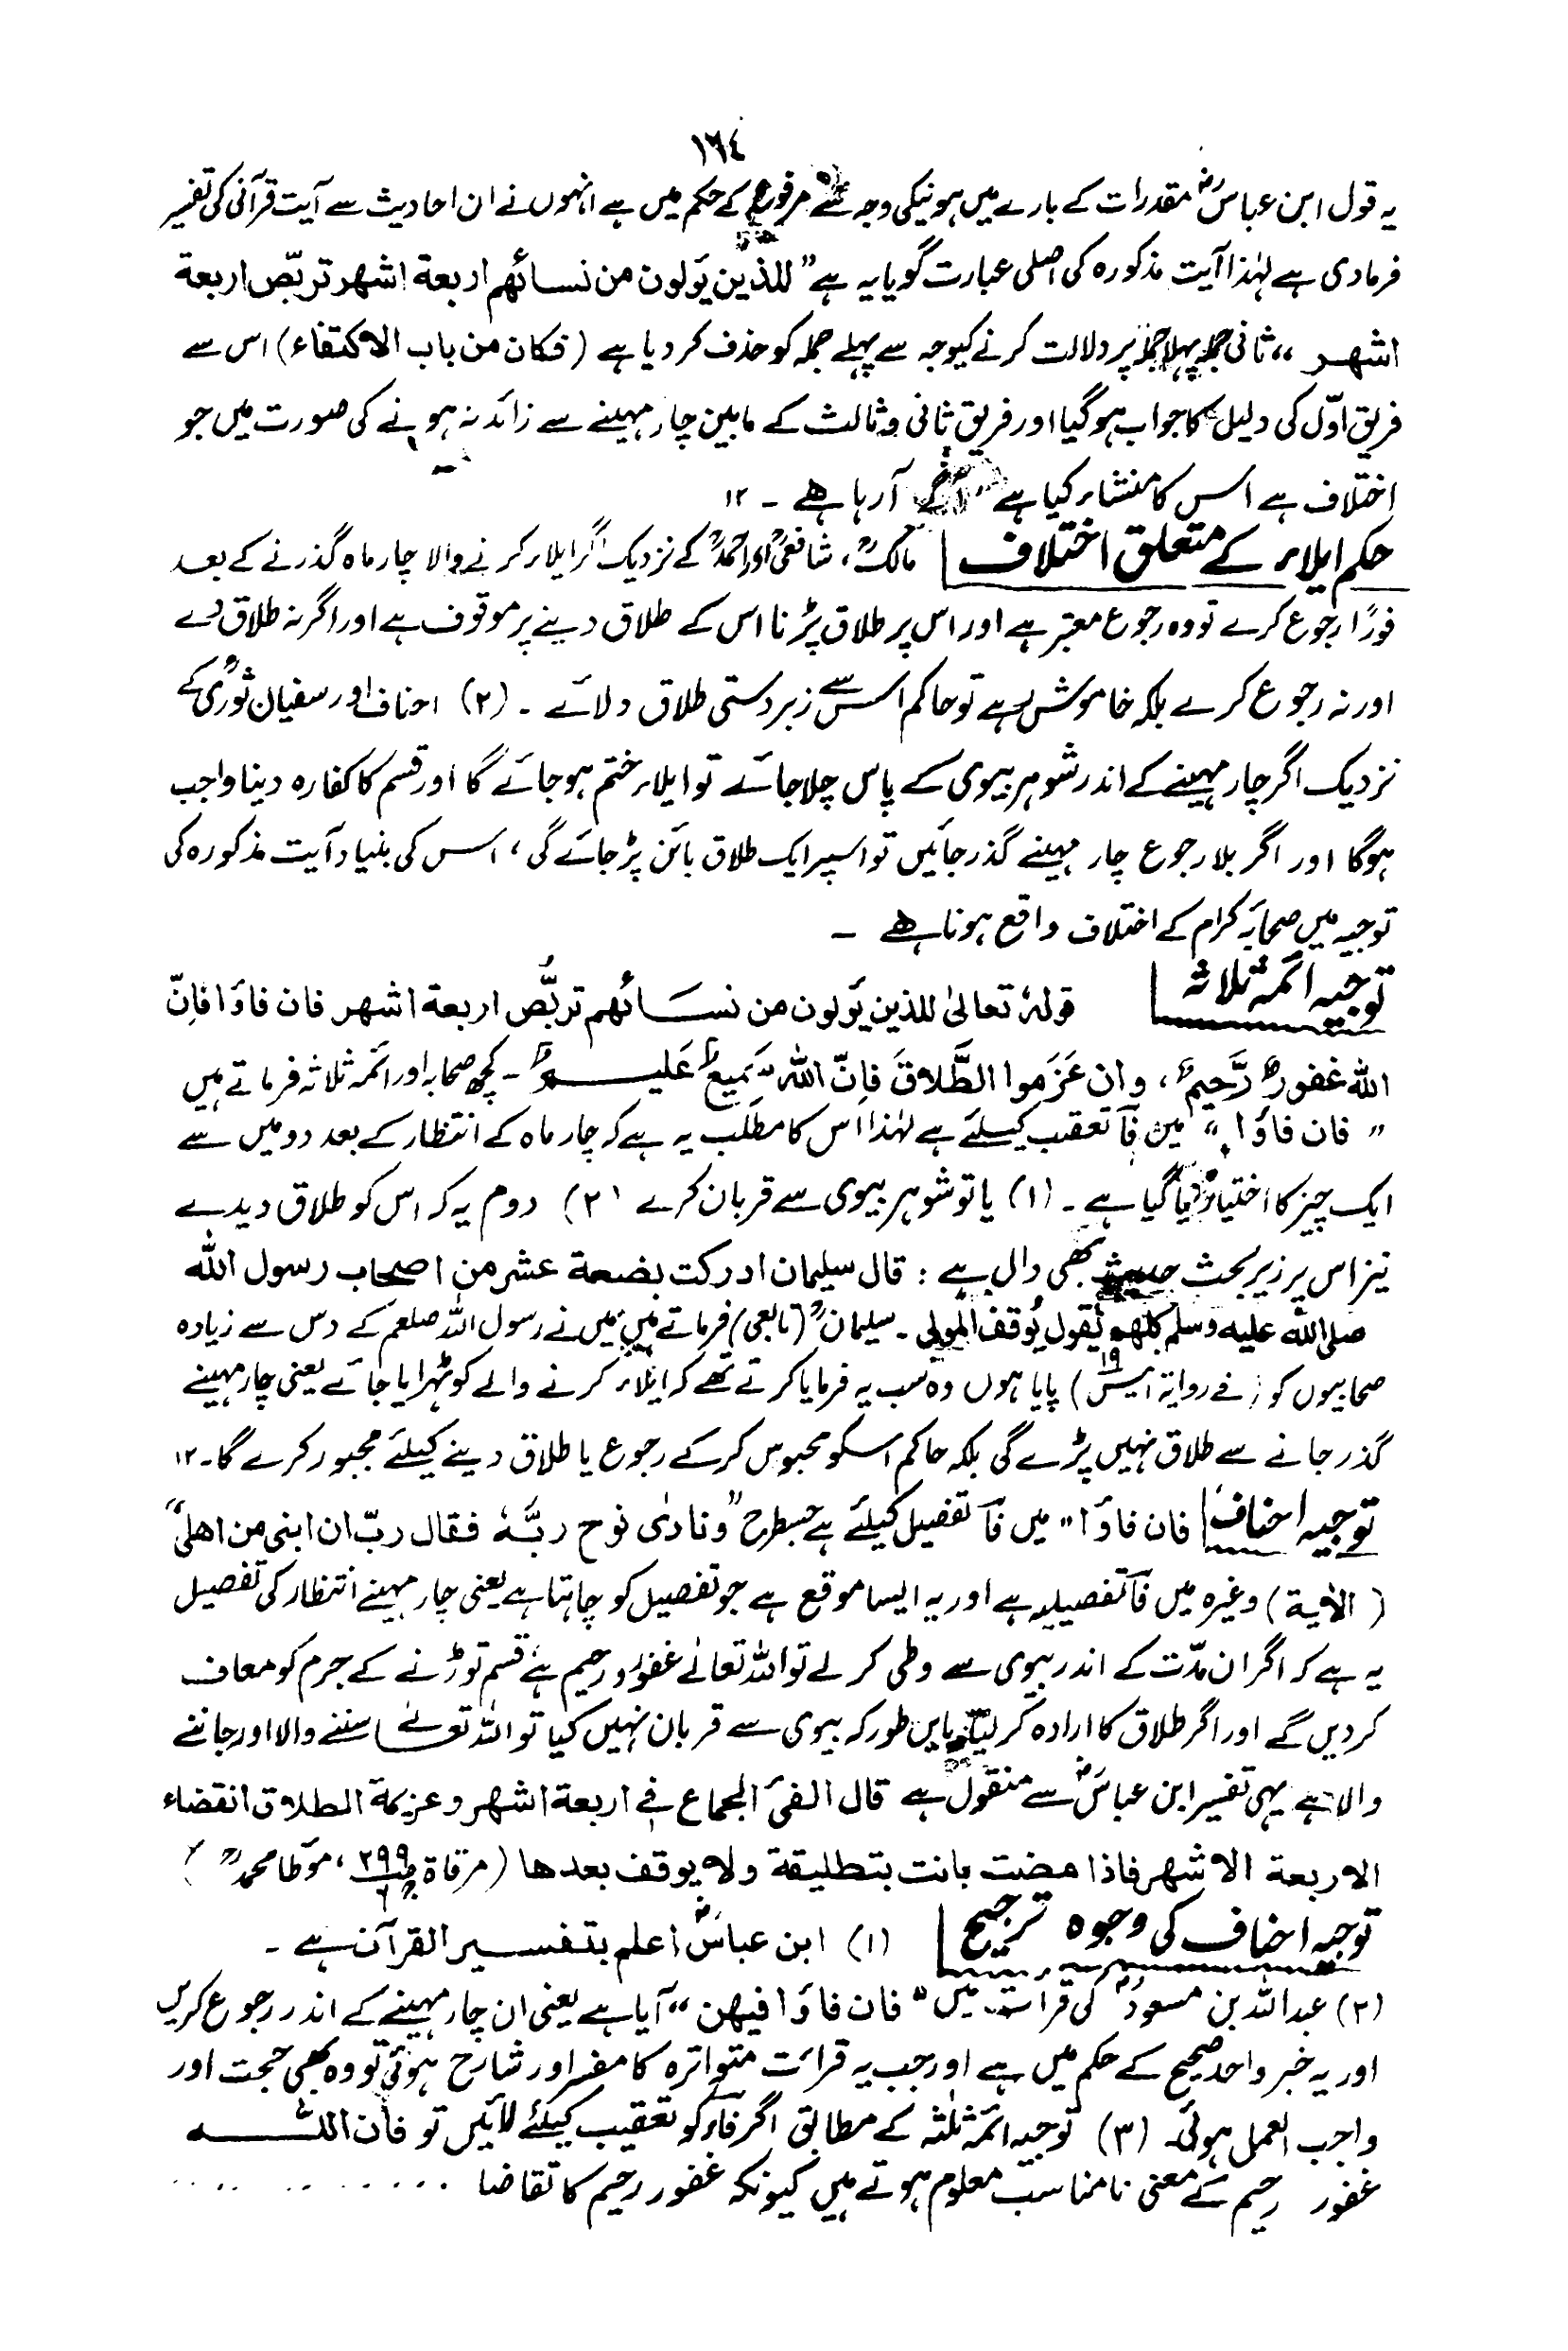 ١٦٤
یہ قول ابن عباسؓ مقدرات کے بارے میں ہونیکی وجہ سے مرفوع کے حکم میں ہے انہوں نے ان احادیث سے آیت قرآنی کی تفسیر
فرمادی ہے لہٰذا آیت مذکورہ کی اصلی عبارت گویا یہ ہے ” للذین یؤلون من نسائھم اربعة اشھر تربّص اربعة
اشھر “ ثانی جملہ پہلا جملہ پر دلالت کرنے کیوجہ سے پہلے جملہ کو حذف کر دیا ہے (فکان من باب الاکتفاء) اس سے
فریق اوّل کی دلیل کا جواب ہوگیا اور فریق ثانی و ثالث کے مابین چار مہینے سے زائد نہ ہونے کی صورت میں جو
اختلاف ہے اس کا منشاء کیا ہے آگے آرہا ہے ۔ ۱۲
حکم ایلاء کے متعلق اختلاف | مالکؒ، شافعیؒ اور احمدؒ کے نزدیک اگر ایلاء کرنے والا چار ماہ گذرنے کے بعد
فورًا رجوع کرے تو وہ رجوع معتبر ہے اور اس پر طلاق پڑنا اس کے طلاق دینے پر موقوف ہے اور اگر نہ طلاق دے
اور نہ رجوع کرے بلکہ خاموش رہے تو حاکم اس سے زبردستی طلاق دلائے ۔ (۲) احناف اور سفیان ثوریؒ کے
نزدیک اگر چار مہینے کے اندر شوہر بیوی کے پاس چلا جائے تو ایلاء ختم ہوجائے گا اور قسم کا کفارہ دینا واجب
ہوگا اور اگر بلا رجوع چار مہینے گذر جائیں تو اسپر ایک طلاق بائن پڑ جائے گی، اس کی بنیاد آیت مذکورہ کی
توجیہ میں صحابۂ کرام کے اختلاف واقع ہونا ہے ۔
توجیہ ائمہ ثلاثہ | قولہٗ تعالیٰ للذین یؤلون من نسائھم تربُّص اربعة اشھر فان فاؤا فاِنّ
اللہ غفورٌ رَّحیمٌ، وان عَزَموا الطَّلاقَ فاِنّ اللہ سَمیعٌ عَلیمٌ ۔ کچھ صحابہ اور ائمہ ثلاثہ فرماتے ہیں
” فان فاؤا “ میں فاؔ تعقب کیلئے ہے لہٰذا اس کا مطلب یہ ہے کہ چار ماہ کے انتظار کے بعد دو میں سے
ایک چیز کا اختیار دیا گیا ہے ۔ (۱) یا تو شوہر بیوی سے قربان کرے (۲) دوم یہ کہ اس کو طلاق دیدے
نیز اس پر زیر بحث حدیث بھی دال ہے : قال سلیمان ادرکت بضعة عشر من اصحاب رسول اللہ
صلی اللہ علیہ وسلم کلھم یقول یُوقف المولی ۔ سلیمانؒ (تابعی) فرماتے ہیں میں نے رسول اللہ صلعم کے دس سے زیادہ
صحابیوں کو (فے روایۃ انیس ۱۹) پایا ہوں وہ سب یہ فرمایا کرتے تھے کہ ایلاء کرنے والے کو ٹھرایا جائے یعنی چار مہینے
گذر جانے سے طلاق نہیں پڑے گی بلکہ حاکم اسکو محبوس کرکے رجوع یا طلاق دینے کیلئے مجبور کرے گا۔ ۱۲
توجیہ احناف | فان فاؤا “ میں فاؔ تفصیل کیلئے ہے جسطرح ” ونادٰی نوح ربَّہٗ فقال ربّ ان ابنی من اھلی “
(الاٰیة) وغیرہ میں فاؔ تفصیلیہ ہے اور یہ ایسا موقع ہے جو تفصیل کو چاہتا ہے یعنی چار مہینے انتظار کی تفصیل
یہ ہے کہ اگر ان مدّت کے اندر بیوی سے وطی کرلے تو اللہ تعالےٰ غفور و رحیم ہے قسم توڑنے کے جرم کو معاف
کردیں گے اور اگر طلاق کا ارادہ کرلیا بایں طور کہ بیوی سے قربان نہیں کیا تو اللہ تعالےٰ سننے والا اور جاننے
والا ہے یہی تفسیر ابن عباسؓ سے منقول ہے قال الفئ الجماع فے اربعة اشھر وعزیمة الطلاق انقضاء
الاربعة الاشھر فاذا مضت بانت بتطلیقة ولا یوقف بعدھا (مرقاة ۲۹۹، مؤطا محمدؒ)
توجیہ احناف کی وجوہ ترجیح | (۱) ابن عباسؓ اعلم بتفسیر القرآن ہے ۔
(۲) عبد اللہ بن مسعودؓ کی قرأت میں ” فان فاؤا فیھن “ آیا ہے یعنی ان چار مہینے کے اندر رجوع کریں
اور یہ خبر واحد صحیح کے حکم میں ہے اور جب یہ قرأت متواترہ کا مفسر اور شارح ہوئی تو وہ بھی حجت اور
واجب العمل ہوئی۔ (۳) توجیہ ائمہ ثلٰثہ کے مطابق اگر فاؔء کو تعقیب کیلئے لائیں تو فان اللہ
غفور رحیم کے معنی نامناسب معلوم ہوتے ہیں کیونکہ غفور رحیم کا تقاضا . . . . . . . . . .